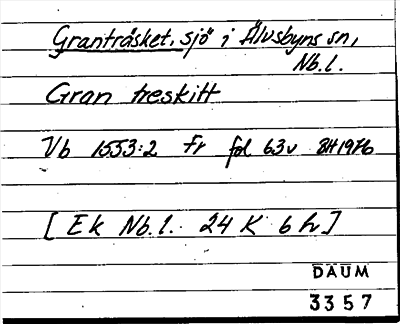 Granträsket, sjö i Älvsbyns sn,
Nb.l.
Gran treskitt
Vb 1553:2 Fr fol 63v BH1976
[Ek Nb.l. 24 K 6 h]
DAUM
3357